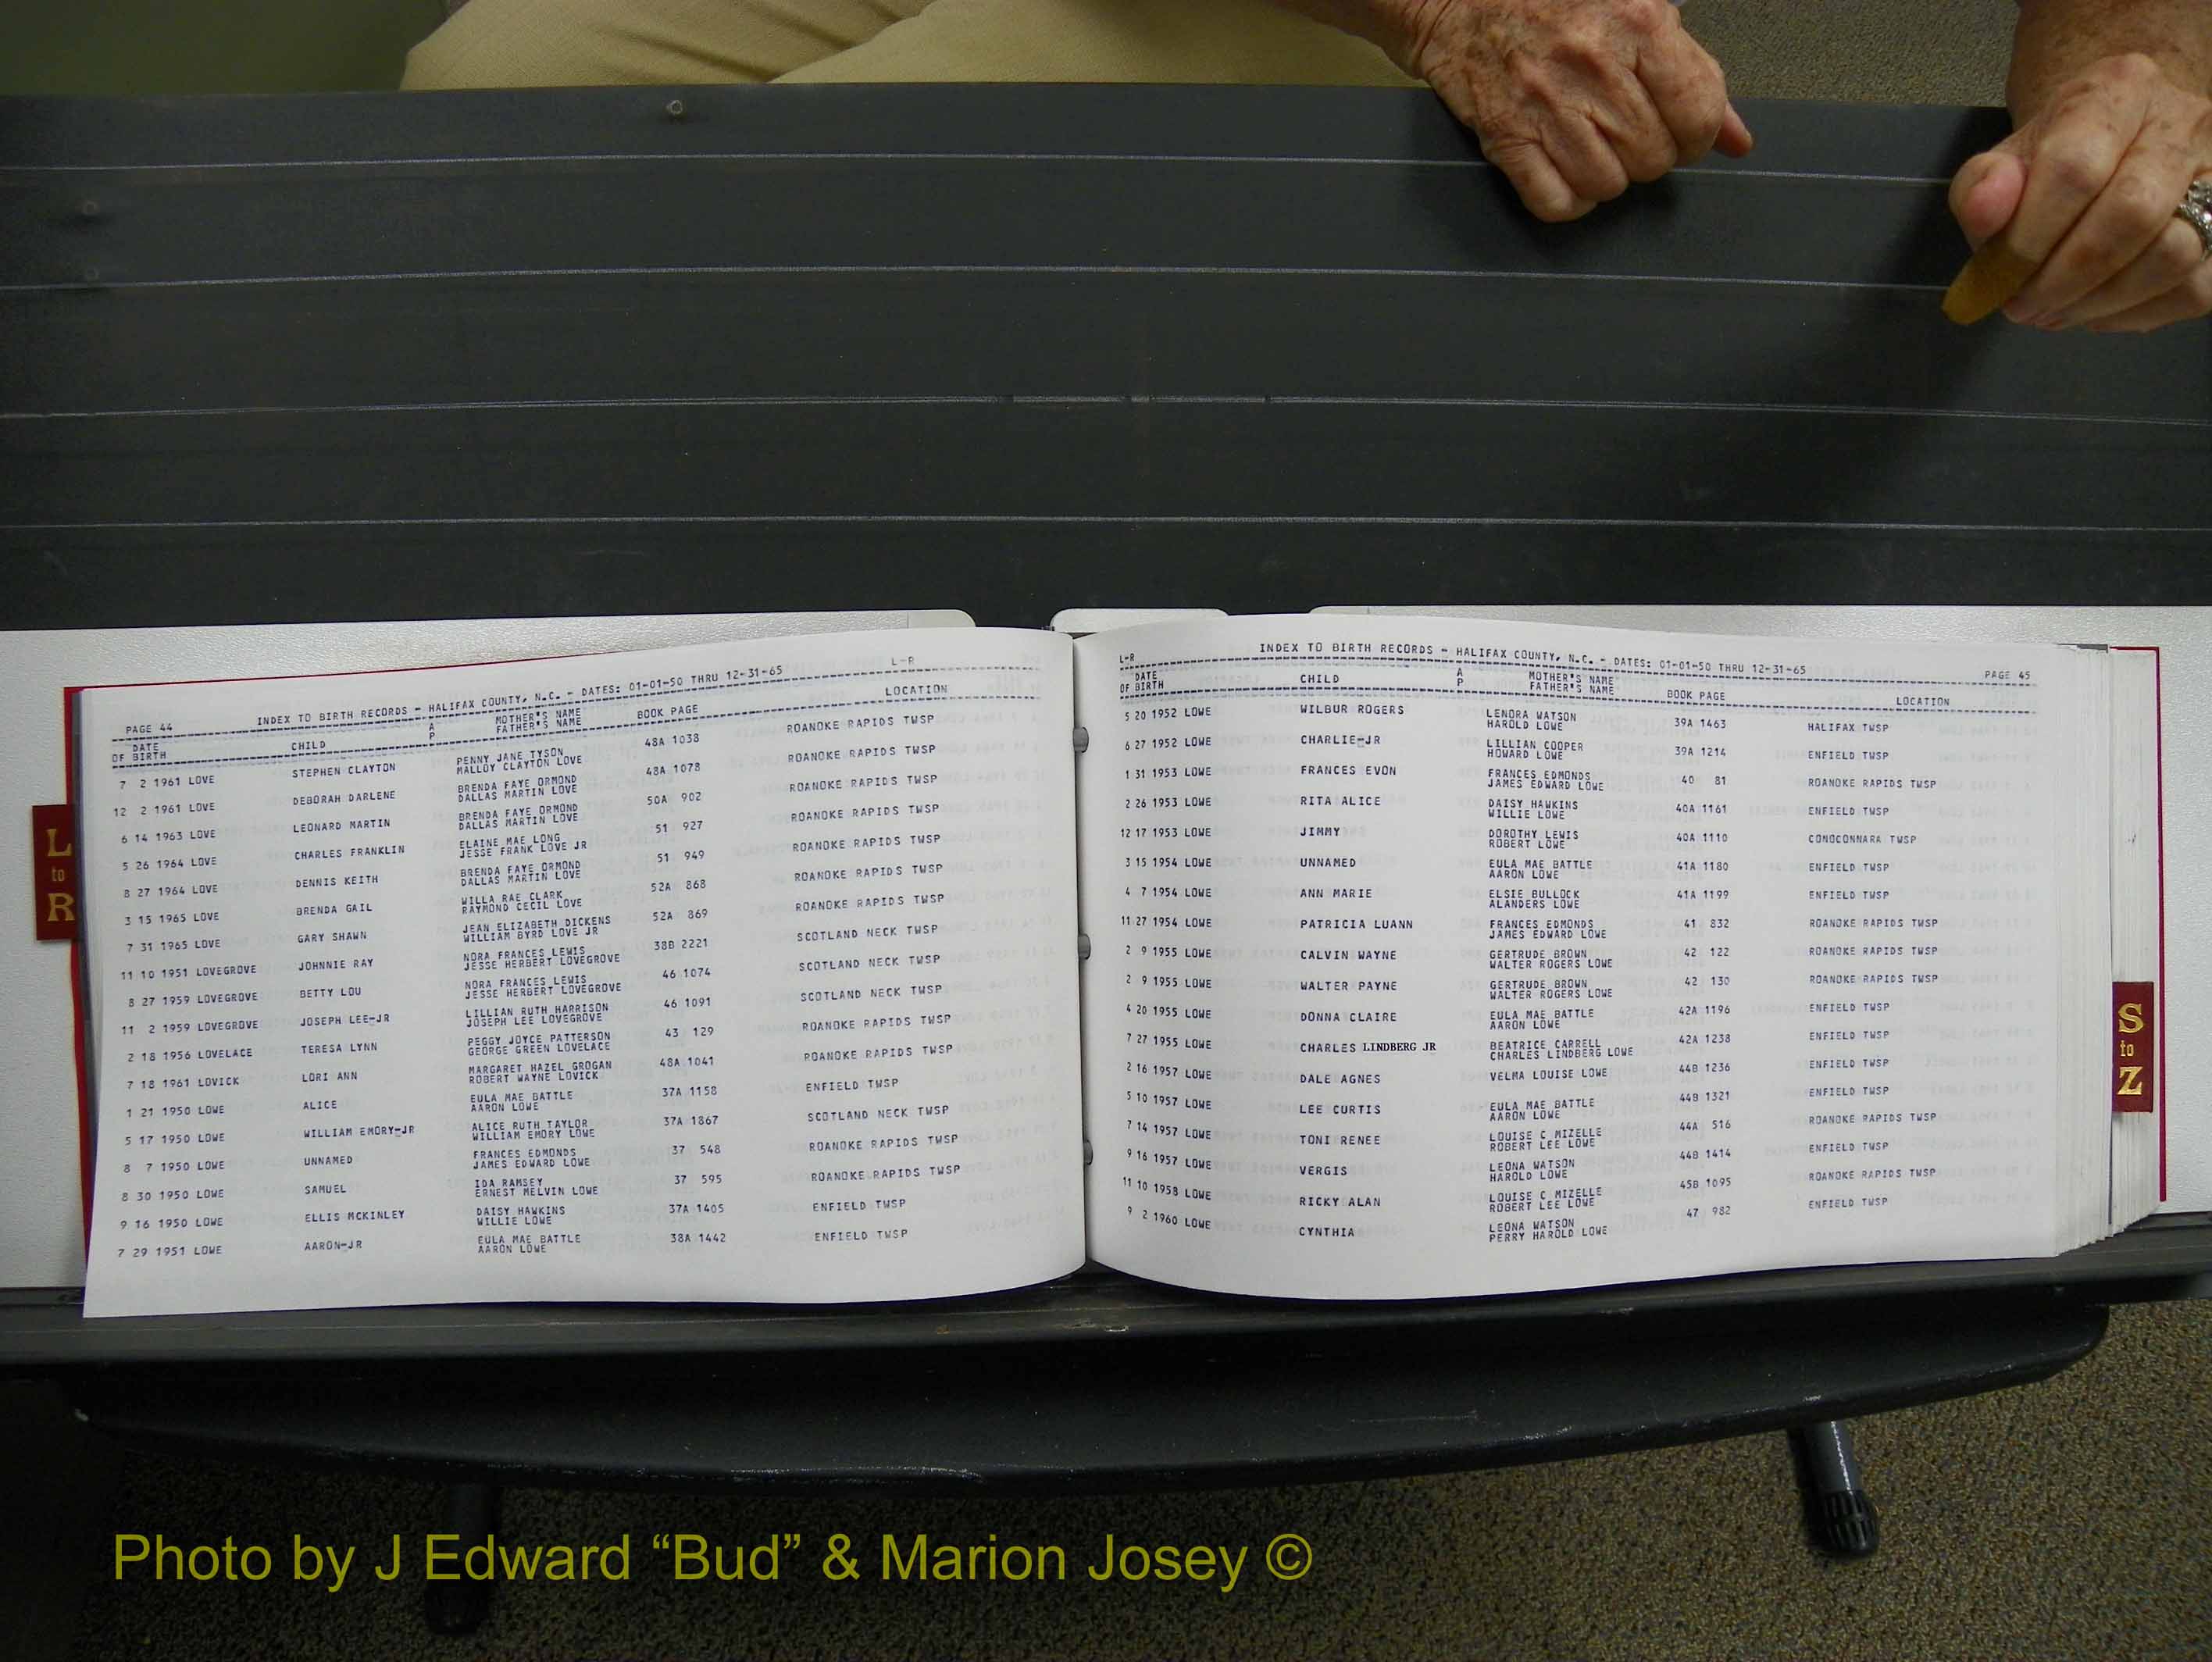 PAGE 44 INDEX TO BIRTH RECORDS - HALIFAX COUNTY, N.C. - DATES: 01-01-50 THRU 12-31-65 L-R
DATE OF BIRTH CHILD A P MOTHER'S NAME FATHER'S NAME BOOK PAGE LOCATION
7 2 1961 LOVE STEPHEN CLAYTON PENNY JANE TYSON MALLOY CLAYTON LOVE 48A 1038 ROANOKE RAPIDS TWSP
12 2 1961 LOVE DEBORAH DARLENE BRENDA FAYE ORMOND DALLAS MARTIN LOVE 48A 1078 ROANOKE RAPIDS TWSP
6 14 1963 LOVE LEONARD MARTIN BRENDA FAYE ORMOND DALLAS MARTIN LOVE 50A 902 ROANOKE RAPIDS TWSP
5 26 1964 LOVE CHARLES FRANKLIN ELAINE MAE LONG JESSE FRANK LOVE JR 51 927 ROANOKE RAPIDS TWSP
8 27 1964 LOVE DENNIS KEITH BRENDA FAYE ORMOND DALLAS MARTIN LOVE 51 949 ROANOKE RAPIDS TWSP
3 15 1965 LOVE BRENDA GAIL WILLA RAE CLARK RAYMOND CECIL LOVE 52A 868 ROANOKE RAPIDS TWSP
7 31 1965 LOVE GARY SHAWN JEAN ELIZABETH DICKENS WILLIAM BYRD LOVE JR 52A 869 ROANOKE RAPIDS TWSP
11 10 1951 LOVEGROVE JOHNNIE RAY NORA FRANCES LEWIS JESSE HERBERT LOVEGROVE 38B 2221 SCOTLAND NECK TWSP
8 27 1959 LOVEGROVE BETTY LOU NORA FRANCES LEWIS JESSE HERBERT LOVEGROVE 46 1074 SCOTLAND NECK TWSP
11 2 1959 LOVEGROVE JOSEPH LEE-JR LILLIAN RUTH HARRISON JOSEPH LEE LOVEGROVE 46 1091 SCOTLAND NECK TWSP
2 18 1956 LOVELACE TERESA LYNN PEGGY JOYCE PATTERSON GEORGE GREEN LOVELACE 43 129 ROANOKE RAPIDS TWSP
7 18 1961 LOVICK LORI ANN MARGARET HAZEL GROGAN ROBERT WAYNE LOVICK 48A 1041 ROANOKE RAPIDS TWSP
1 21 1950 LOWE ALICE EULA MAE BATTLE AARON LOWE 37A 1158 ENFIELD TWSP
5 17 1950 LOWE WILLIAM EMORY-JR ALICE RUTH TAYLOR WILLIAM EMORY LOWE 37A 1867 SCOTLAND NECK TWSP
8 7 1950 LOWE UNNAMED FRANCES EDMONDS JAMES EDWARD LOWE 37 548 ROANOKE RAPIDS TWSP
8 30 1950 LOWE SAMUEL IDA RAMSEY ERNEST MELVIN LOWE 37 595 ROANOKE RAPIDS TWSP
9 16 1950 LOWE ELLIS MCKINLEY DAISY HAWKINS WILLIE LOWE 37A 1405 ENFIELD TWSP
7 29 1951 LOWE AARON-JR EULA MAE BATTLE AARON LOWE 38A 1442 ENFIELD TWSP
L to R
L-R INDEX TO BIRTH RECORDS - HALIFAX COUNTY, N.C. - DATES: 01-01-50 THRU 12-31-65 PAGE 45
DATE OF BIRTH CHILD A P MOTHER'S NAME FATHER'S NAME BOOK PAGE LOCATION
5 20 1952 LOWE WILBUR ROGERS LENORA WATSON HAROLD LOWE 39A 1463 HALIFAX TWSP
6 27 1952 LOWE CHARLIE-JR LILLIAN COOPER HOWARD LOWE 39A 1214 ENFIELD TWSP
1 31 1953 LOWE FRANCES EVON FRANCES EDMONDS JAMES EDWARD LOWE 40 81 ROANOKE RAPIDS TWSP
2 26 1953 LOWE RITA ALICE DAISY HAWKINS WILLIE LOWE 40A 1161 ENFIELD TWSP
12 17 1953 LOWE JIMMY DOROTHY LEWIS ROBERT LOWE 40A 1110 CONOCONNARA TWSP
3 15 1954 LOWE UNNAMED EULA MAE BATTLE AARON LOWE 41A 1180 ENFIELD TWSP
4 7 1954 LOWE ANN MARIE ELSIE BULLOCK ALANDERS LOWE 41A 1199 ENFIELD TWSP
11 27 1954 LOWE PATRICIA LUANN FRANCES EDMONDS JAMES EDWARD LOWE 41 832 ROANOKE RAPIDS TWSP
2 9 1955 LOWE CALVIN WAYNE GERTRUDE BROWN WALTER ROGERS LOWE 42 122 ROANOKE RAPIDS TWSP
2 9 1955 LOWE WALTER PAYNE GERTRUDE BROWN WALTER ROGERS LOWE 42 130 ROANOKE RAPIDS TWSP
4 20 1955 LOWE DONNA CLAIRE EULA MAE BATTLE AARON LOWE 42A 1196 ENFIELD TWSP
7 27 1955 LOWE CHARLES LINDBERG JR BEATRICE CARRELL CHARLES LINDBERG LOWE 42A 1238 ENFIELD TWSP
2 16 1957 LOWE DALE AGNES VELMA LOUISE LOWE 44B 1236 ENFIELD TWSP
5 10 1957 LOWE LEE CURTIS EULA MAE BATTLE AARON LOWE 44B 1321 ENFIELD TWSP
7 14 1957 LOWE TONI RENEE LOUISE C MIZELLE ROBERT LEE LOWE 44A 516 ROANOKE RAPIDS TWSP
9 16 1957 LOWE VERGIS LEONA WATSON HAROLD LOWE 44B 1414 ENFIELD TWSP
11 10 1958 LOWE RICKY ALAN LOUISE C MIZELLE ROBERT LEE LOWE 45B 1095 ROANOKE RAPIDS TWSP
9 2 1960 LOWE CYNTHIA LEONA WATSON PERRY HAROLD LOWE 47 982 ENFIELD TWSP
S to Z
Photo by J Edward “Bud” & Marion Josey ©